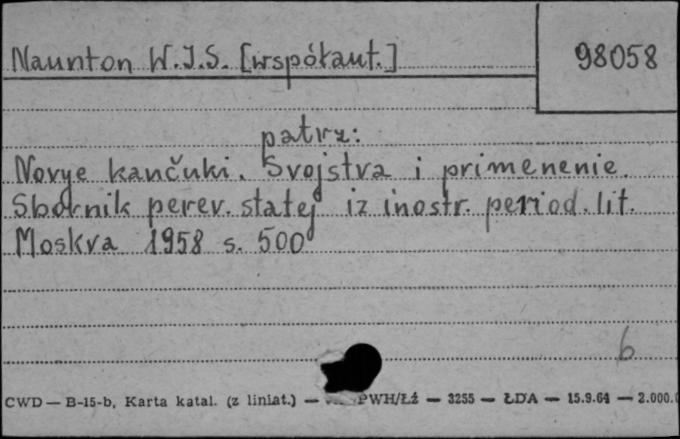 Naunton W.J.S. [współaut.]
98058
patrz:
Novye kančuki. Svojstva i primenenie.
Sbornik perev. statej iz inostr. period. lit.
Moskva 1958 s. 500
6
CWD — B-15-b, Karta katal. (z liniat.) — PWH/Łź — 3255 — ŁDA — 15.9.64 — 2.000.0